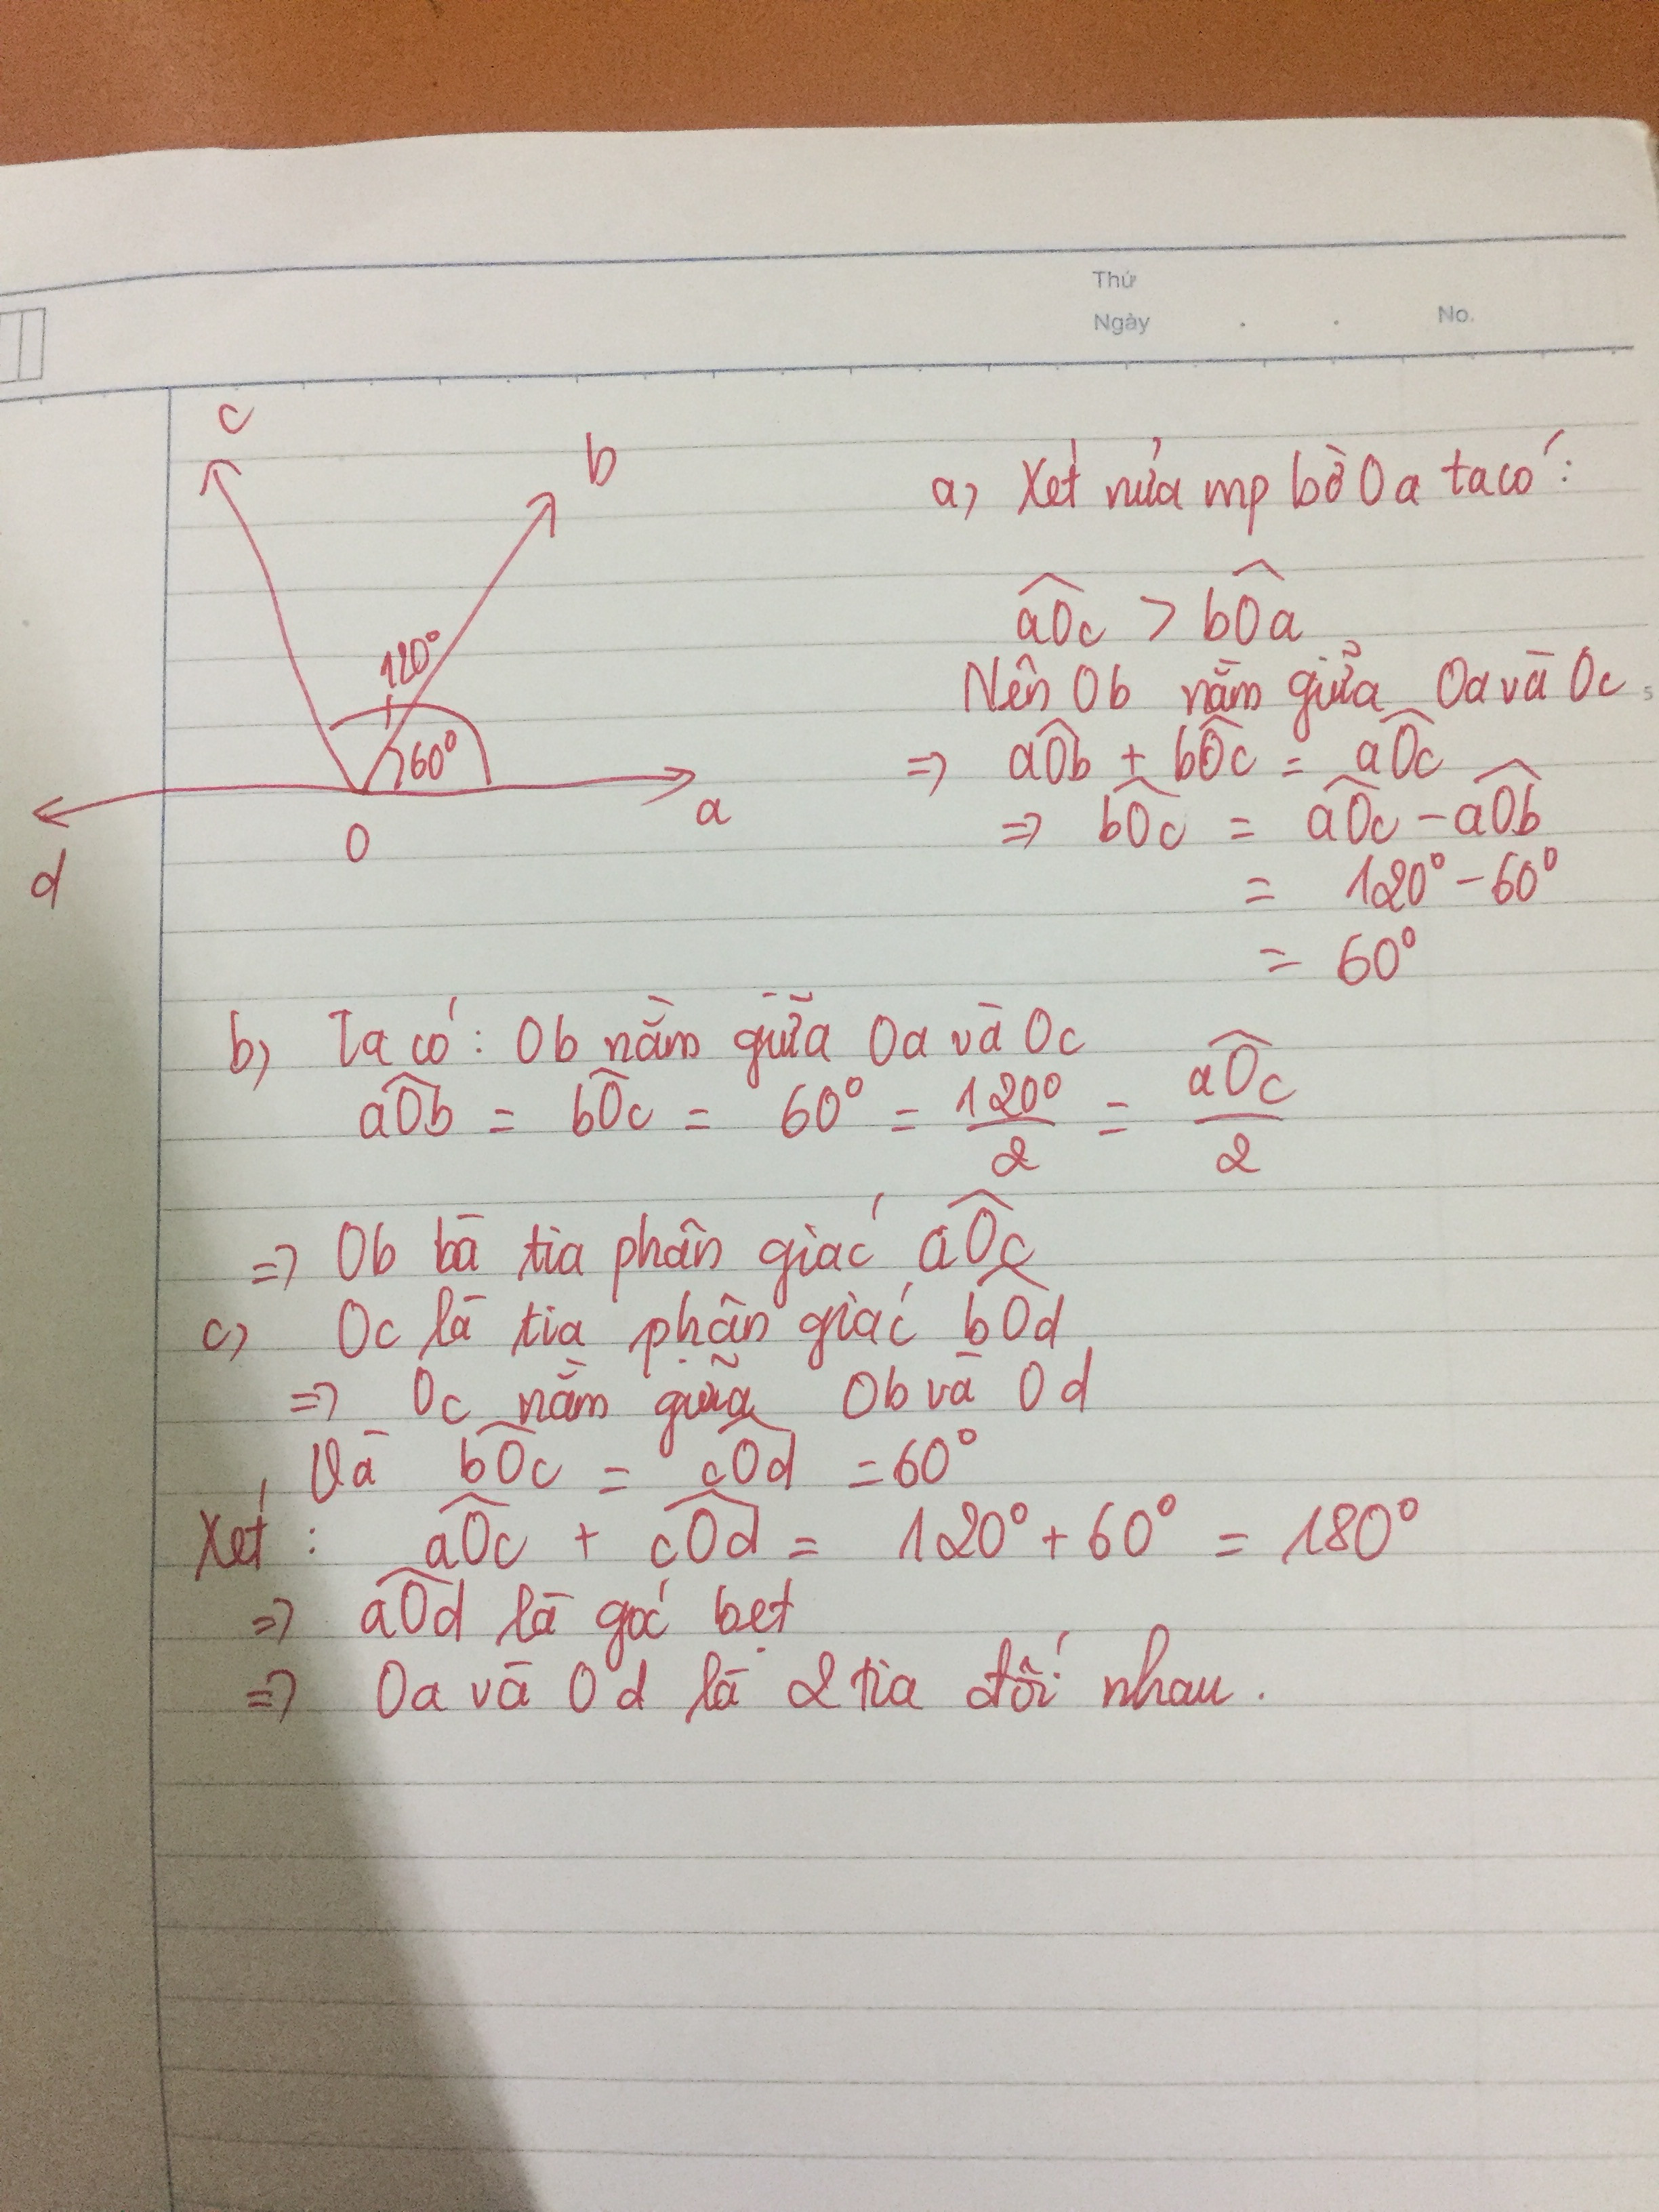 Thứ
Ngày . . No.
c
b
120°
60°
a
O
d
a) Xét nửa mp bờ Oa ta có:
aÔc > bÔa
Nên Ob nằm giữa Oa và Oc
5
=> aÔb + bÔc = aÔc
=> bÔc = aÔc - aÔb
= 120° - 60°
= 60°
b) Ta có: Ob nằm giữa Oa và Oc
aÔb = bÔc = 60° = 120°/2 = aÔc/2
=> Ob là tia phân giác aÔc
c) Oc là tia phân giác bÔd
=> Oc nằm giữa Ob và Od
Và bÔc = cÔd = 60°
Xét: aÔc + cÔd = 120° + 60° = 180°
=> aÔd là góc bẹt
=> Oa và Od là 2 tia đối nhau.